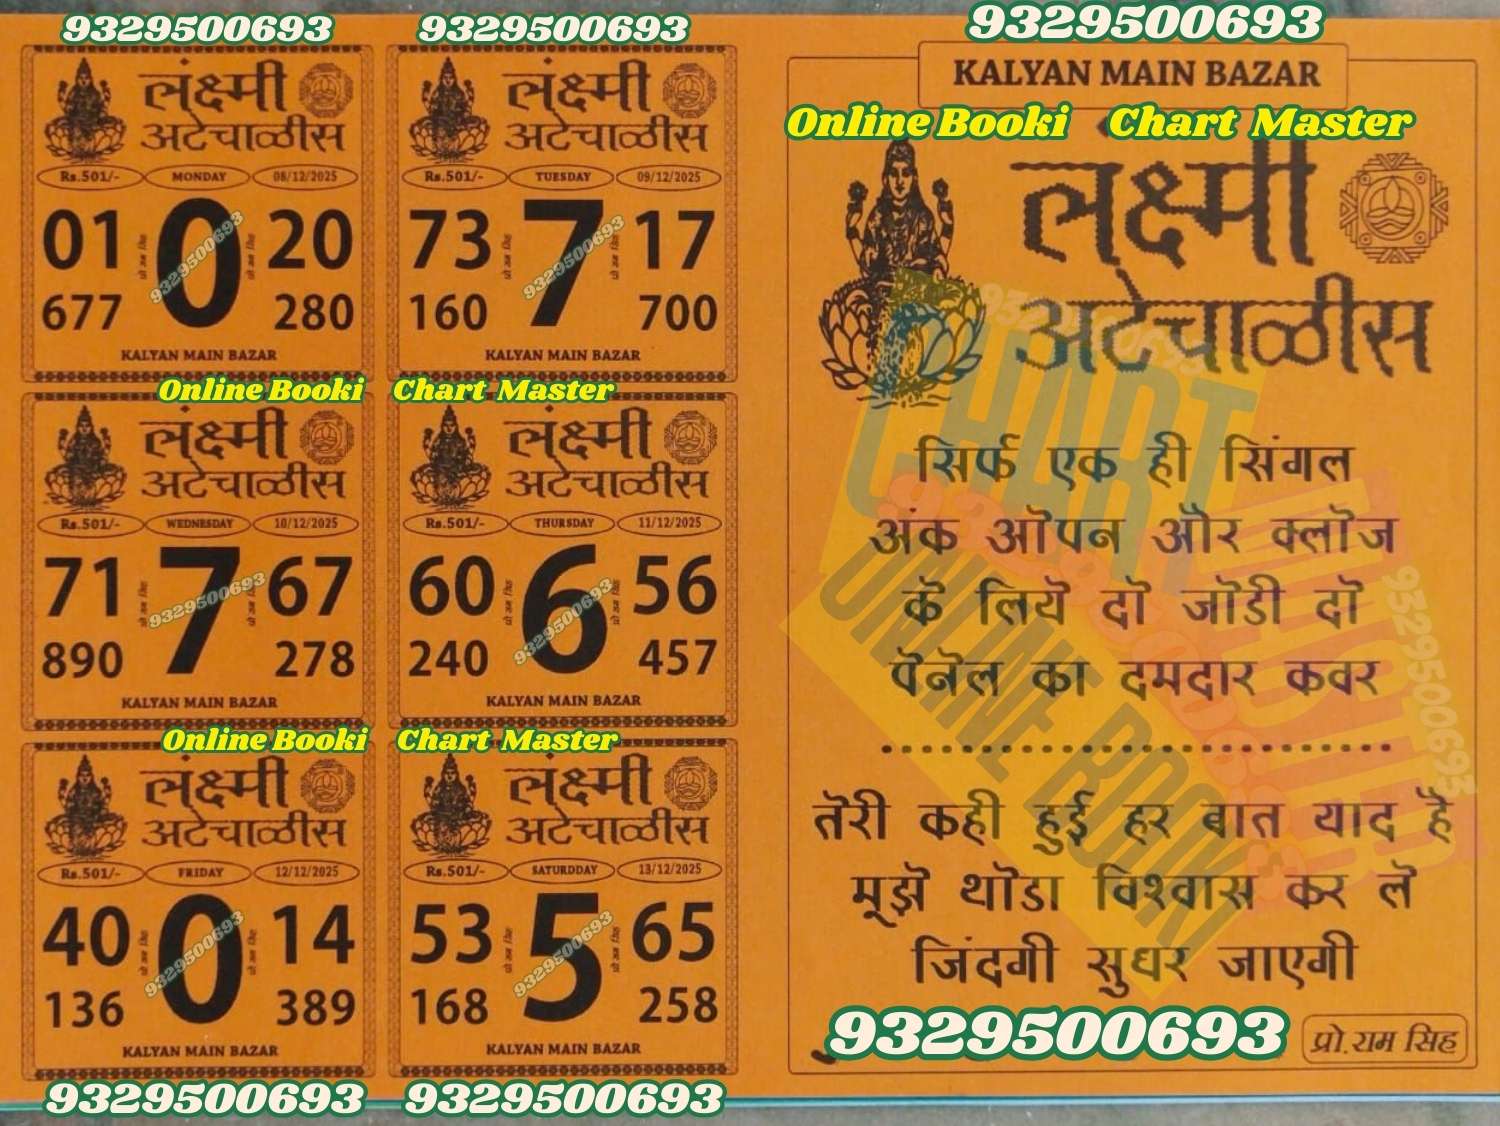 9329500693
9329500693
9329500693
लक्ष्मी
अटेचाळीस
Rs.501/- MONDAY 08/12/2025
01 0 20
9329500693
677 280
KALYAN MAIN BAZAR
लक्ष्मी
अटेचाळीस
Rs.501/- TUESDAY 09/12/2025
73 7 17
9329500693
160 700
KALYAN MAIN BAZAR
Online Booki Chart Master
लक्ष्मी
अटेचाळीस
Rs.501/- WEDNESDAY 10/12/2025
71 7 67
9329500693
890 278
KALYAN MAIN BAZAR
लक्ष्मी
अटेचाळीस
Rs.501/- THURSDAY 11/12/2025
60 6 56
9329500693
240 457
KALYAN MAIN BAZAR
Online Booki Chart Master
लक्ष्मी
अटेचाळीस
Rs.501/- FRIDAY 12/12/2025
40 0 14
9329500693
136 389
KALYAN MAIN BAZAR
लक्ष्मी
अटेचाळीस
Rs.501/- SATURDDAY 13/12/2025
53 5 65
9329500693
168 258
KALYAN MAIN BAZAR
9329500693
9329500693
KALYAN MAIN BAZAR
Online Booki Chart Master
लक्ष्मी
अटेचाळीस
9329500693
CHART
MASTER
ONLINE BOOKI
9329500693
सिर्फ एक ही सिंगल
अंक ऒपन और क्लॊज
कॆ लियॆ दॊ जॊडी दॊ
पॆनॆल का दमदार कवर
तॆरी कही हुई हर बात याद है
मूझॆ थॊडा विश्वास कर लॆ
जिंदगी सुधर जाएगी
9329500693
प्रो.राम सिंह